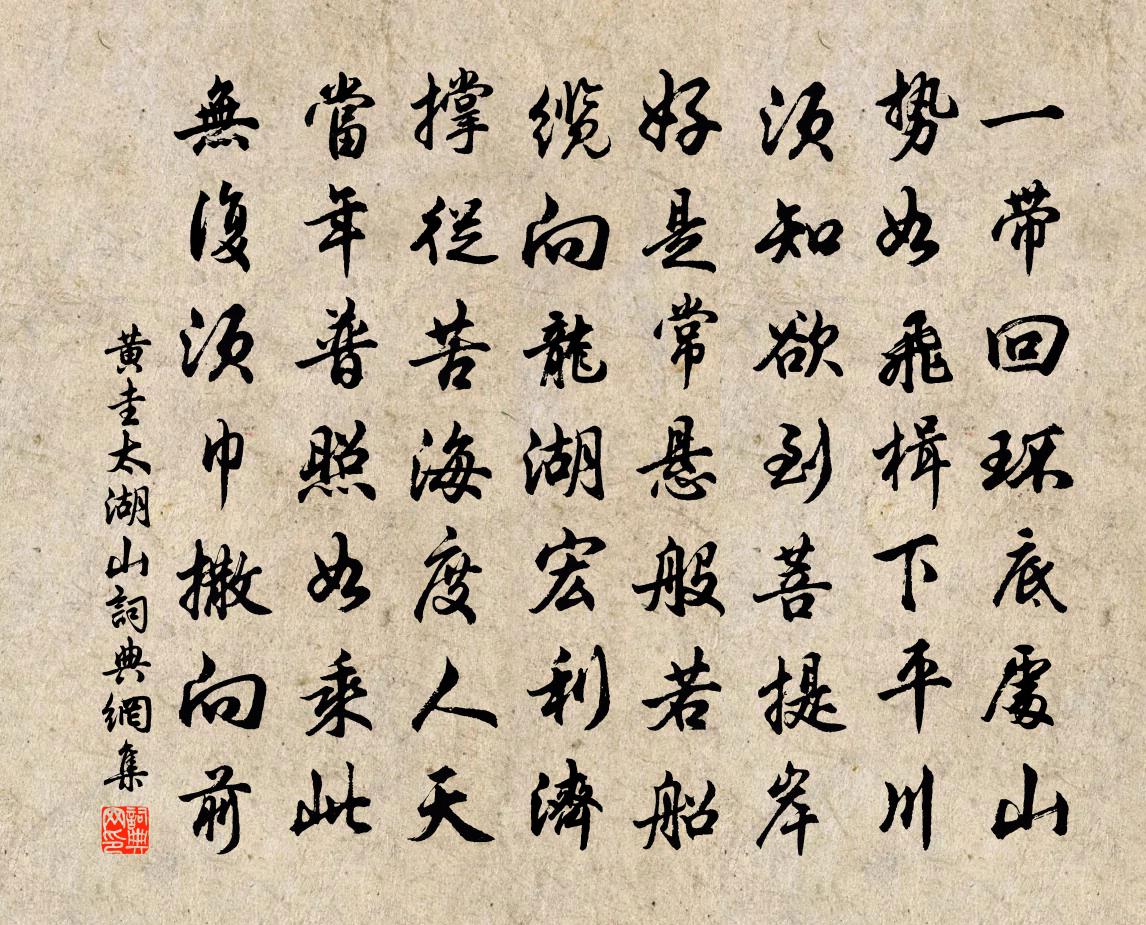 一带回环底處山
势如飛楫下平川
须知欲到菩提岸
好是常悬般若船
缆向龍湖宏利濟
撑從苦海度人天
當年普照如乘此
無復须巾撒向前
黄圭太湖山詞典網集
詞典网印